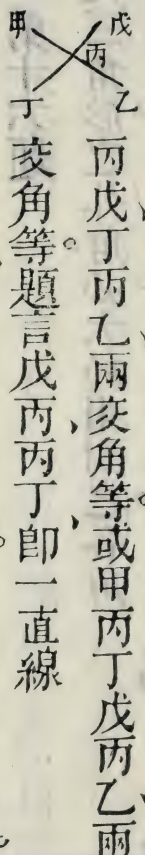 甲 戊
丙
丁 乙
丙戊丁丙乙兩交角等或甲丙丁戊丙乙兩
交角等題言戊丙丙丁卽一直線